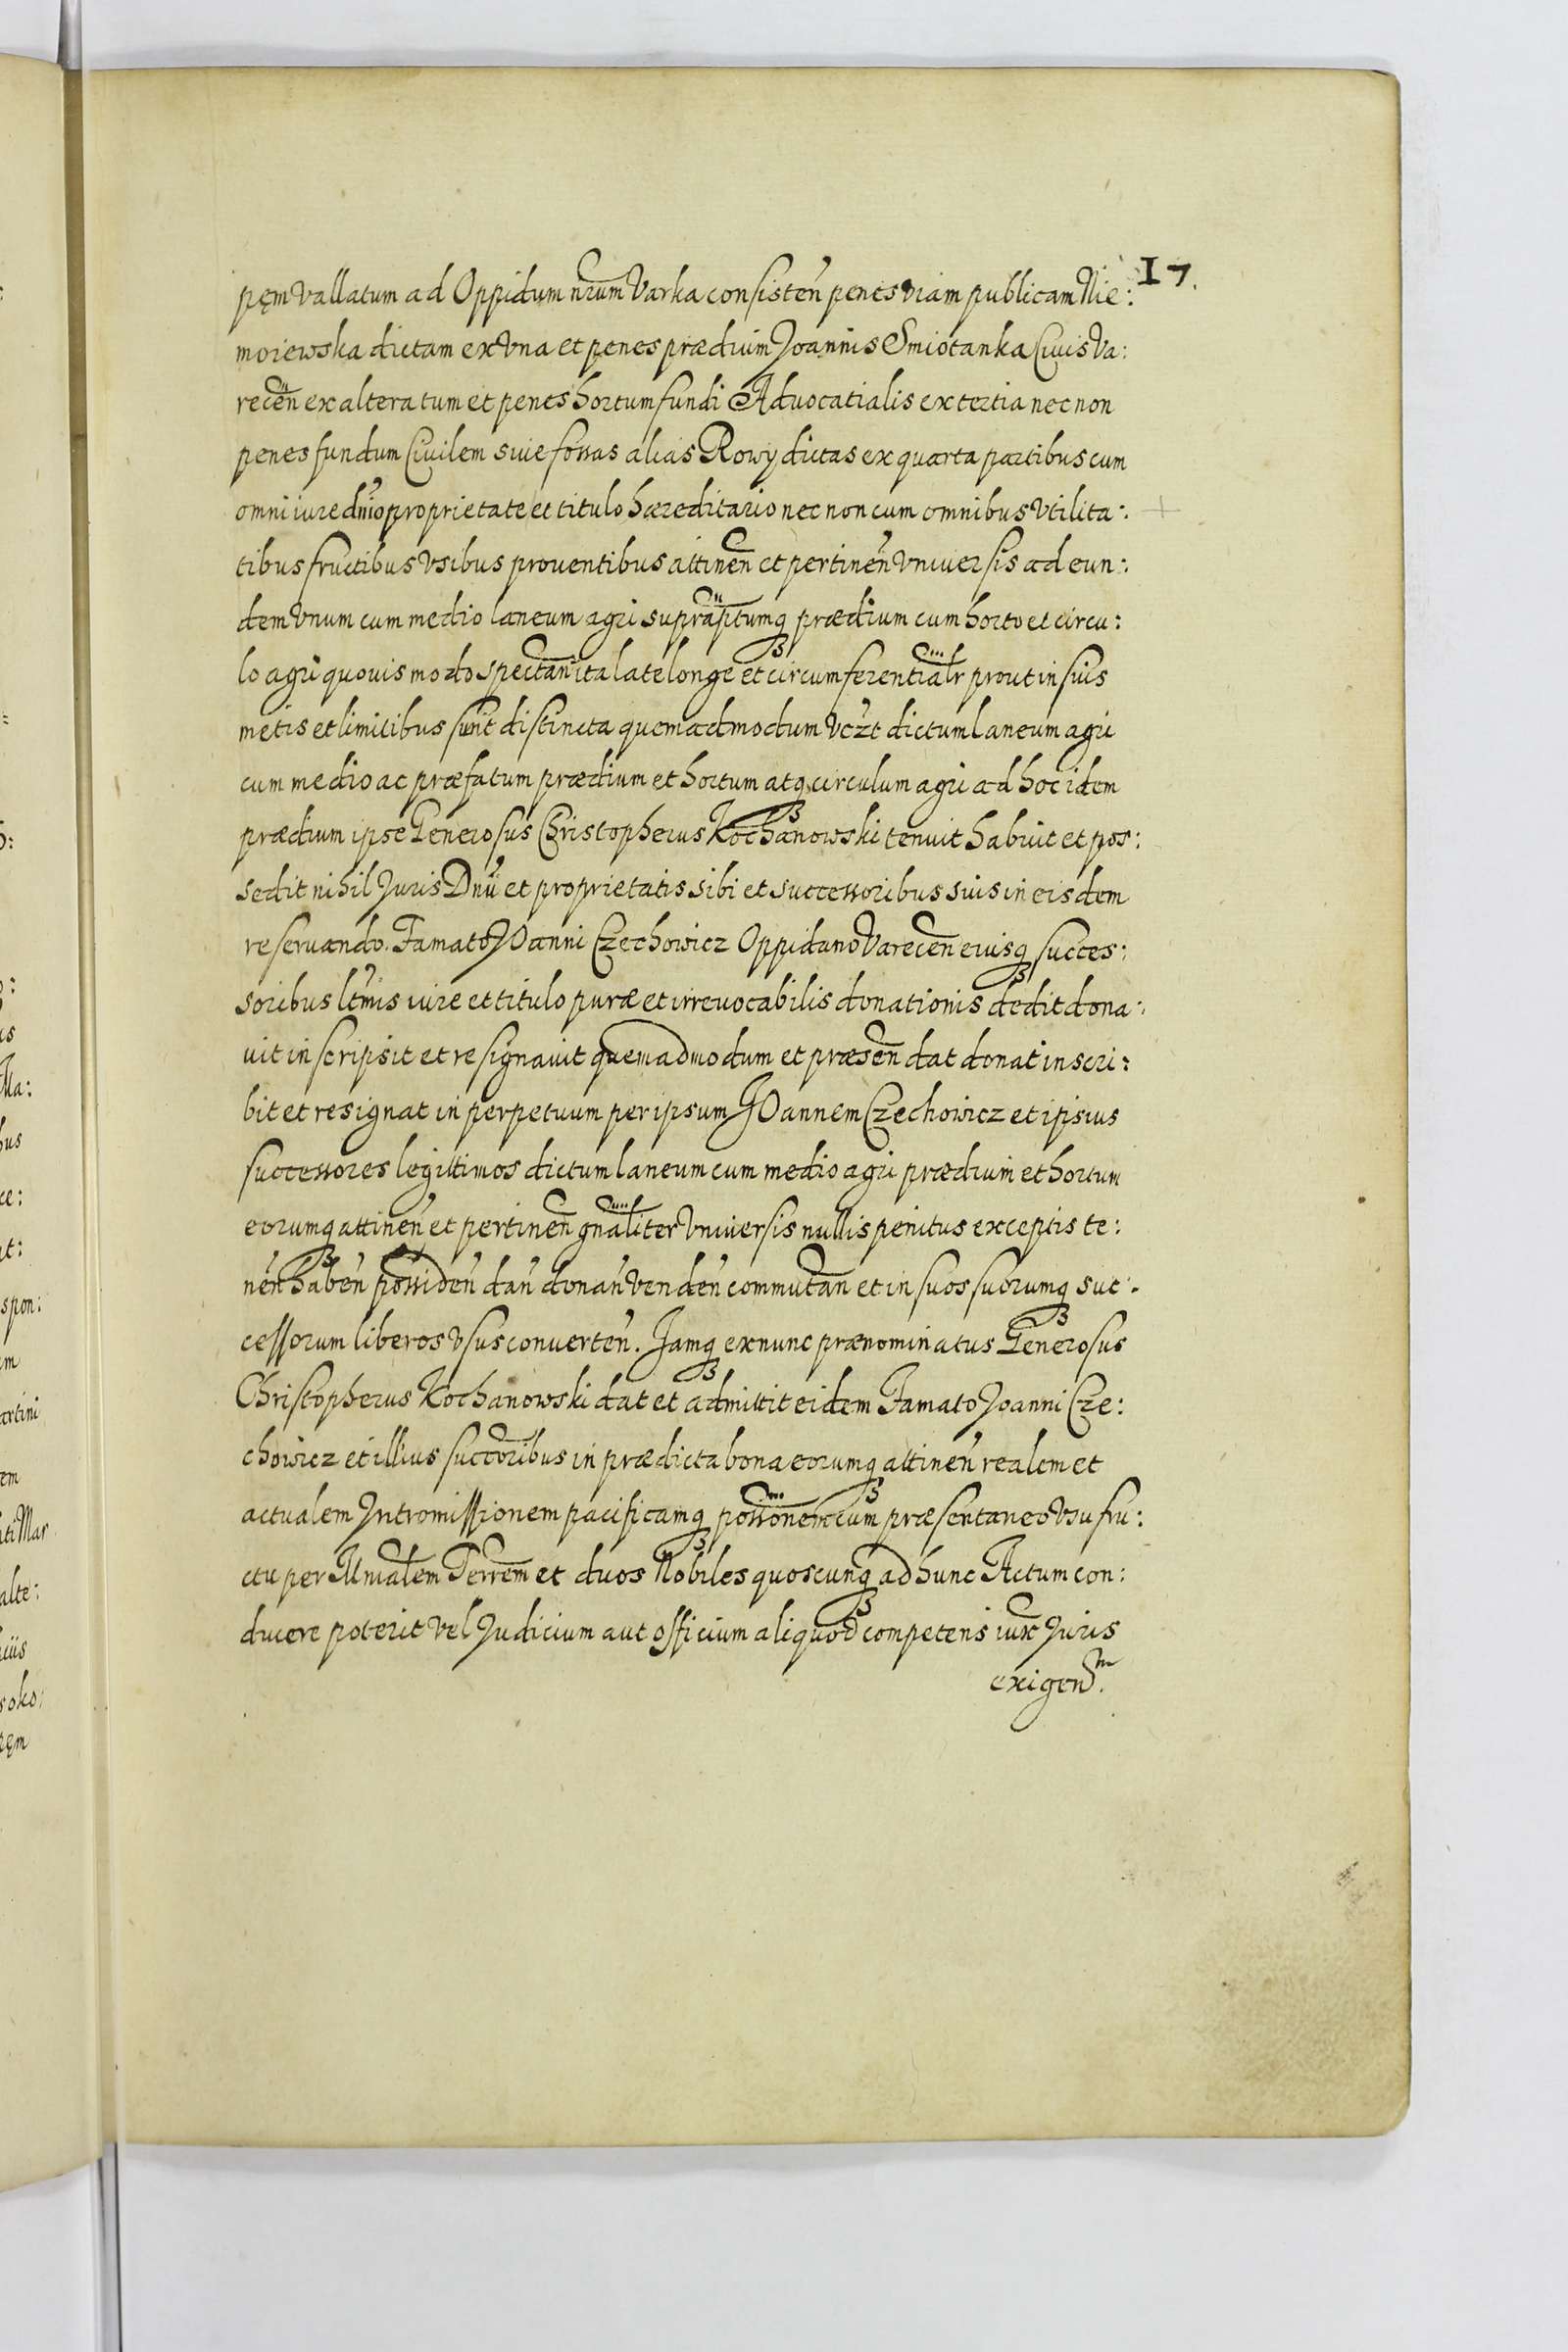 17.
pęm vallatum ad Oppidum nr̃um Varka consisteñ penes viam publicam Nie:
moiewska dictam ex vna et penes prædium Joannis Smiotanka Civis Va:
receñ ex altera tum et penes hortum fundi Advocatialis ex tertia nec non
penes fundum Civilem siue fossas alias Rowy dictas ex quarta partibus cum
omni iure dñio proprietate et titulo hæreditario nec non cum omnibus vtilita:
tibus fructibus vsibus prouentibus attineñ et pertineñ vniuersis ad eun:
dem vnum cum medio laneum agri suprãptumq3 prædium cum horto et circu:
lo agri quouis modo spectañ ita late longe et circumferentialr̃ prout in suis
metis et limitibus sunt distincta quemadmodum vcz̃t dictum laneum agri
cum medio ac præfatum prædium et hortum atq3 circulum agri ad hoc idem
prædium ipse Generosus Christopherus Kochanowski tenuit habuit et pos:
sedit nihil Juris Dñii et proprietatis sibi et successoribus suis in eisdem
reseruando. Famato JOanni Czechowicz Oppidano Vareceñ eiusq3 succes:
soribus ltm̃is iure et titulo puræ et irreuocabilis donationis dedit dona:
uit inscripsit et resignauit quemadmodum et præseñ dat donat inscri:
bit et resignat in perpetuum per ipsum JOannem Czechowicz et ipsius
successores legittimos dictum laneum cum medio agri prædium et hortum
eorumq3 attineñ et pertineñ gñaliter vniuersis nullis penitus exceptis te:
neñ habeñ possideñ dañ donañ vendeñ commutañ et in suos suorumq3 suc:
cessorum liberos vsus conuerteñ. Jamq3 ex nunc prænominatus Generosus
Christopherus Kochanowski dat et admittit eidem Famato Joanni Cze:
chowicz et illius succoribus in prædicta bona eorumq3 attineñ realem et
actualem Intromissionem pacificamq3 possonem cum præsentaneo vsufru:
ctu per Mnialem Terrem et duos Nobiles quoscunq3 ad hunc Actum con:
ducere poterit vel Judicium aut officium aliquod competens iux Juris
exigen.m